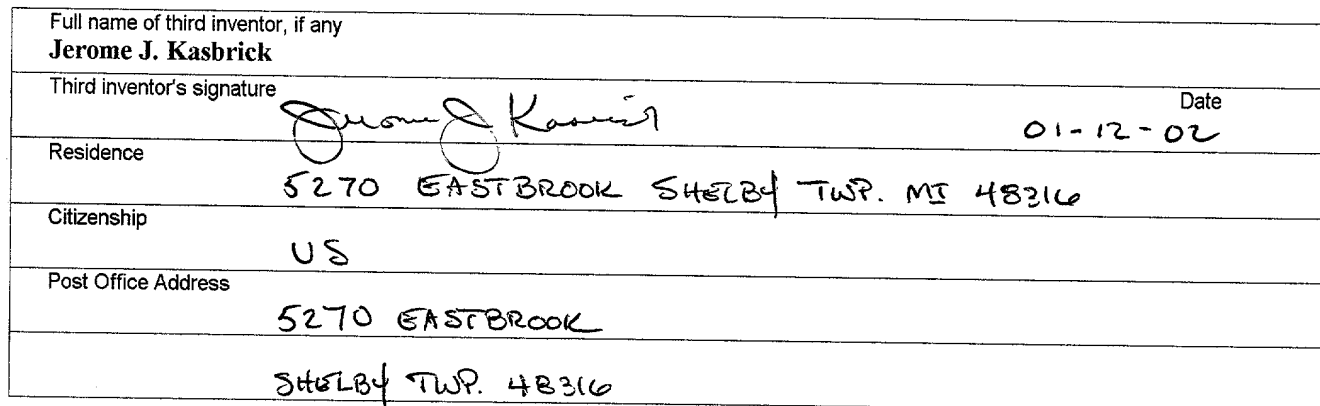 Full name of third inventor, if any
Jerome J. Kasbrick
Third inventor's signature
Date
Jerome J Kasbrick
01-12-02
Residence
5270 EASTBROOK SHELBY TWP. MI 48316
Citizenship
US
Post Office Address
5270 EASTBROOK
SHELBY TWP. 48316